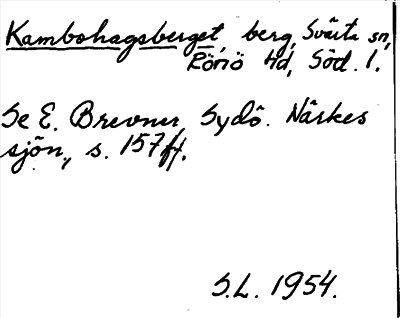 Kambohagsberget, berg, Svärta sn,
Rönö Hd, Söd. l.
Se E. Brevner, Sydö. Närkes
sjön., s. 157 ff.
S.L. 1954.